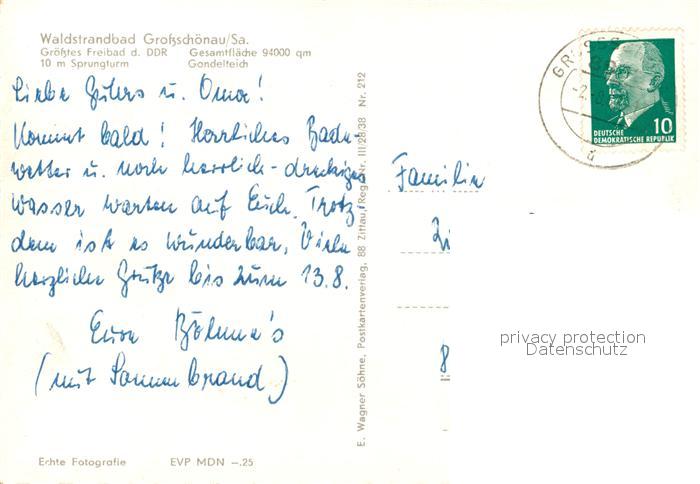 Waldstrandbad Großschönau/Sa.
Größtes Freibad d. DDR Gesamtfläche 94000 qm
10 m Sprungturm Gondelteich
Liebe u. Oma!
Kommt bald! Herrliches Bade-
wetter u. noch herrlich-dreckiges
Wasser warten auf Euch. Trotz-
dem ist es wunderbar, Viele
herzliche Grüße bis zum 13.8.
Eure Böhme's
(mit Sonnenbrand)
Echte Fotografie EVP MDN –.25
E. Wagner Söhne, Postkartenverlag, 88 Zittau/Reg.-Nr. III/28/38 Nr. 212
Familie
Zi
8
10
DEUTSCHE
DEMOKRATISCHE REPUBLIK
privacy protection
Datenschutz